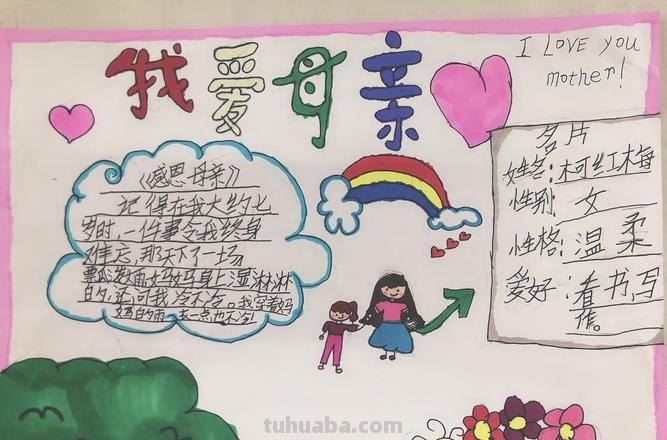 我爱母亲
I LOVE you
mother!
《感恩母亲》
记得在我大约七
岁时,一件事令我终身
难忘,那天下了一场
雨妈妈身上湿淋淋
的,还问我冷不冷。我穿着妈
妈的雨衣一点也不冷!
名片
姓名:柯红梅
性别:女
性格:温柔
爱好:看书,写
作。
tuhuaba.com